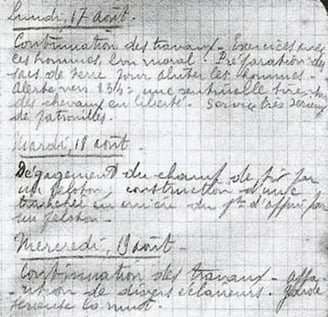 Lundi, 17 août.
Continuation des travaux - Exercices avec
les hommes, bon moral - Préparation des
sacs de terre pour abriter les hommes -
Alerte vers : une sentinelle tire sur
des chevaux en liberté. Service très sérieux
de patrouilles.
Mardi, 18 août.
Dégagement du champ de tir par
un peloton, construction d'une
tranchée en arrière du pt d'appui par
un peloton -
Mercredi, 19 août -
Continuation des travaux - appa-
rition de divers éclaireurs. Garde
sérieuse la nuit.